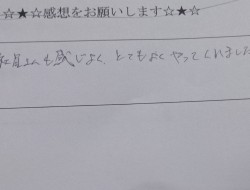 ☆★☆感想をお願いします☆★☆
社員さんも感じよく、とてもよくやってくれました